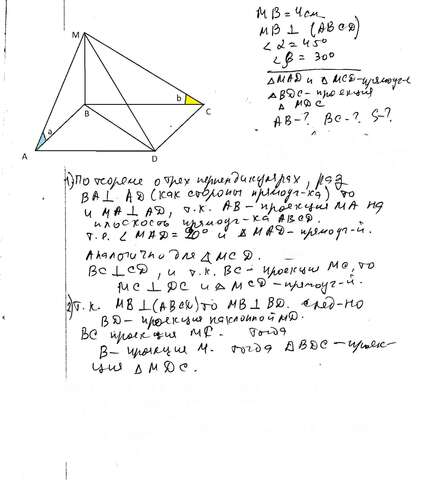 M
B
b
C
a
A
D
MB = 4 см
MB ⊥ (ABCD)
∠α = 45°
∠β = 30°
△MAD и △MCD - прямоуг-е
△BDC - проекция
△ MDC
AB-? BC-? S-?
1) По теореме о трех перпендикулярах, раз
BA ⊥ AD (как стороны прямоуг-ка) то
и MA ⊥ AD, т.к. AB - проекция MA на
плоскость прямоуг-ка ABCD.
т.е. ∠MAD = 90° и △MAD - прямоуг-й.
Аналогично для △MCD.
BC ⊥ CD, и т.к. BC - проекция MC, то
MC ⊥ DC и △MCD - прямоуг-й.
2) Т.к. MB ⊥ (ABCD) то MB ⊥ BD. След-но
BD - проекция наклонной MD.
BC проекция MC. Тогда
B - проекция M. Тогда △BDC - проек-
ция △MDC.